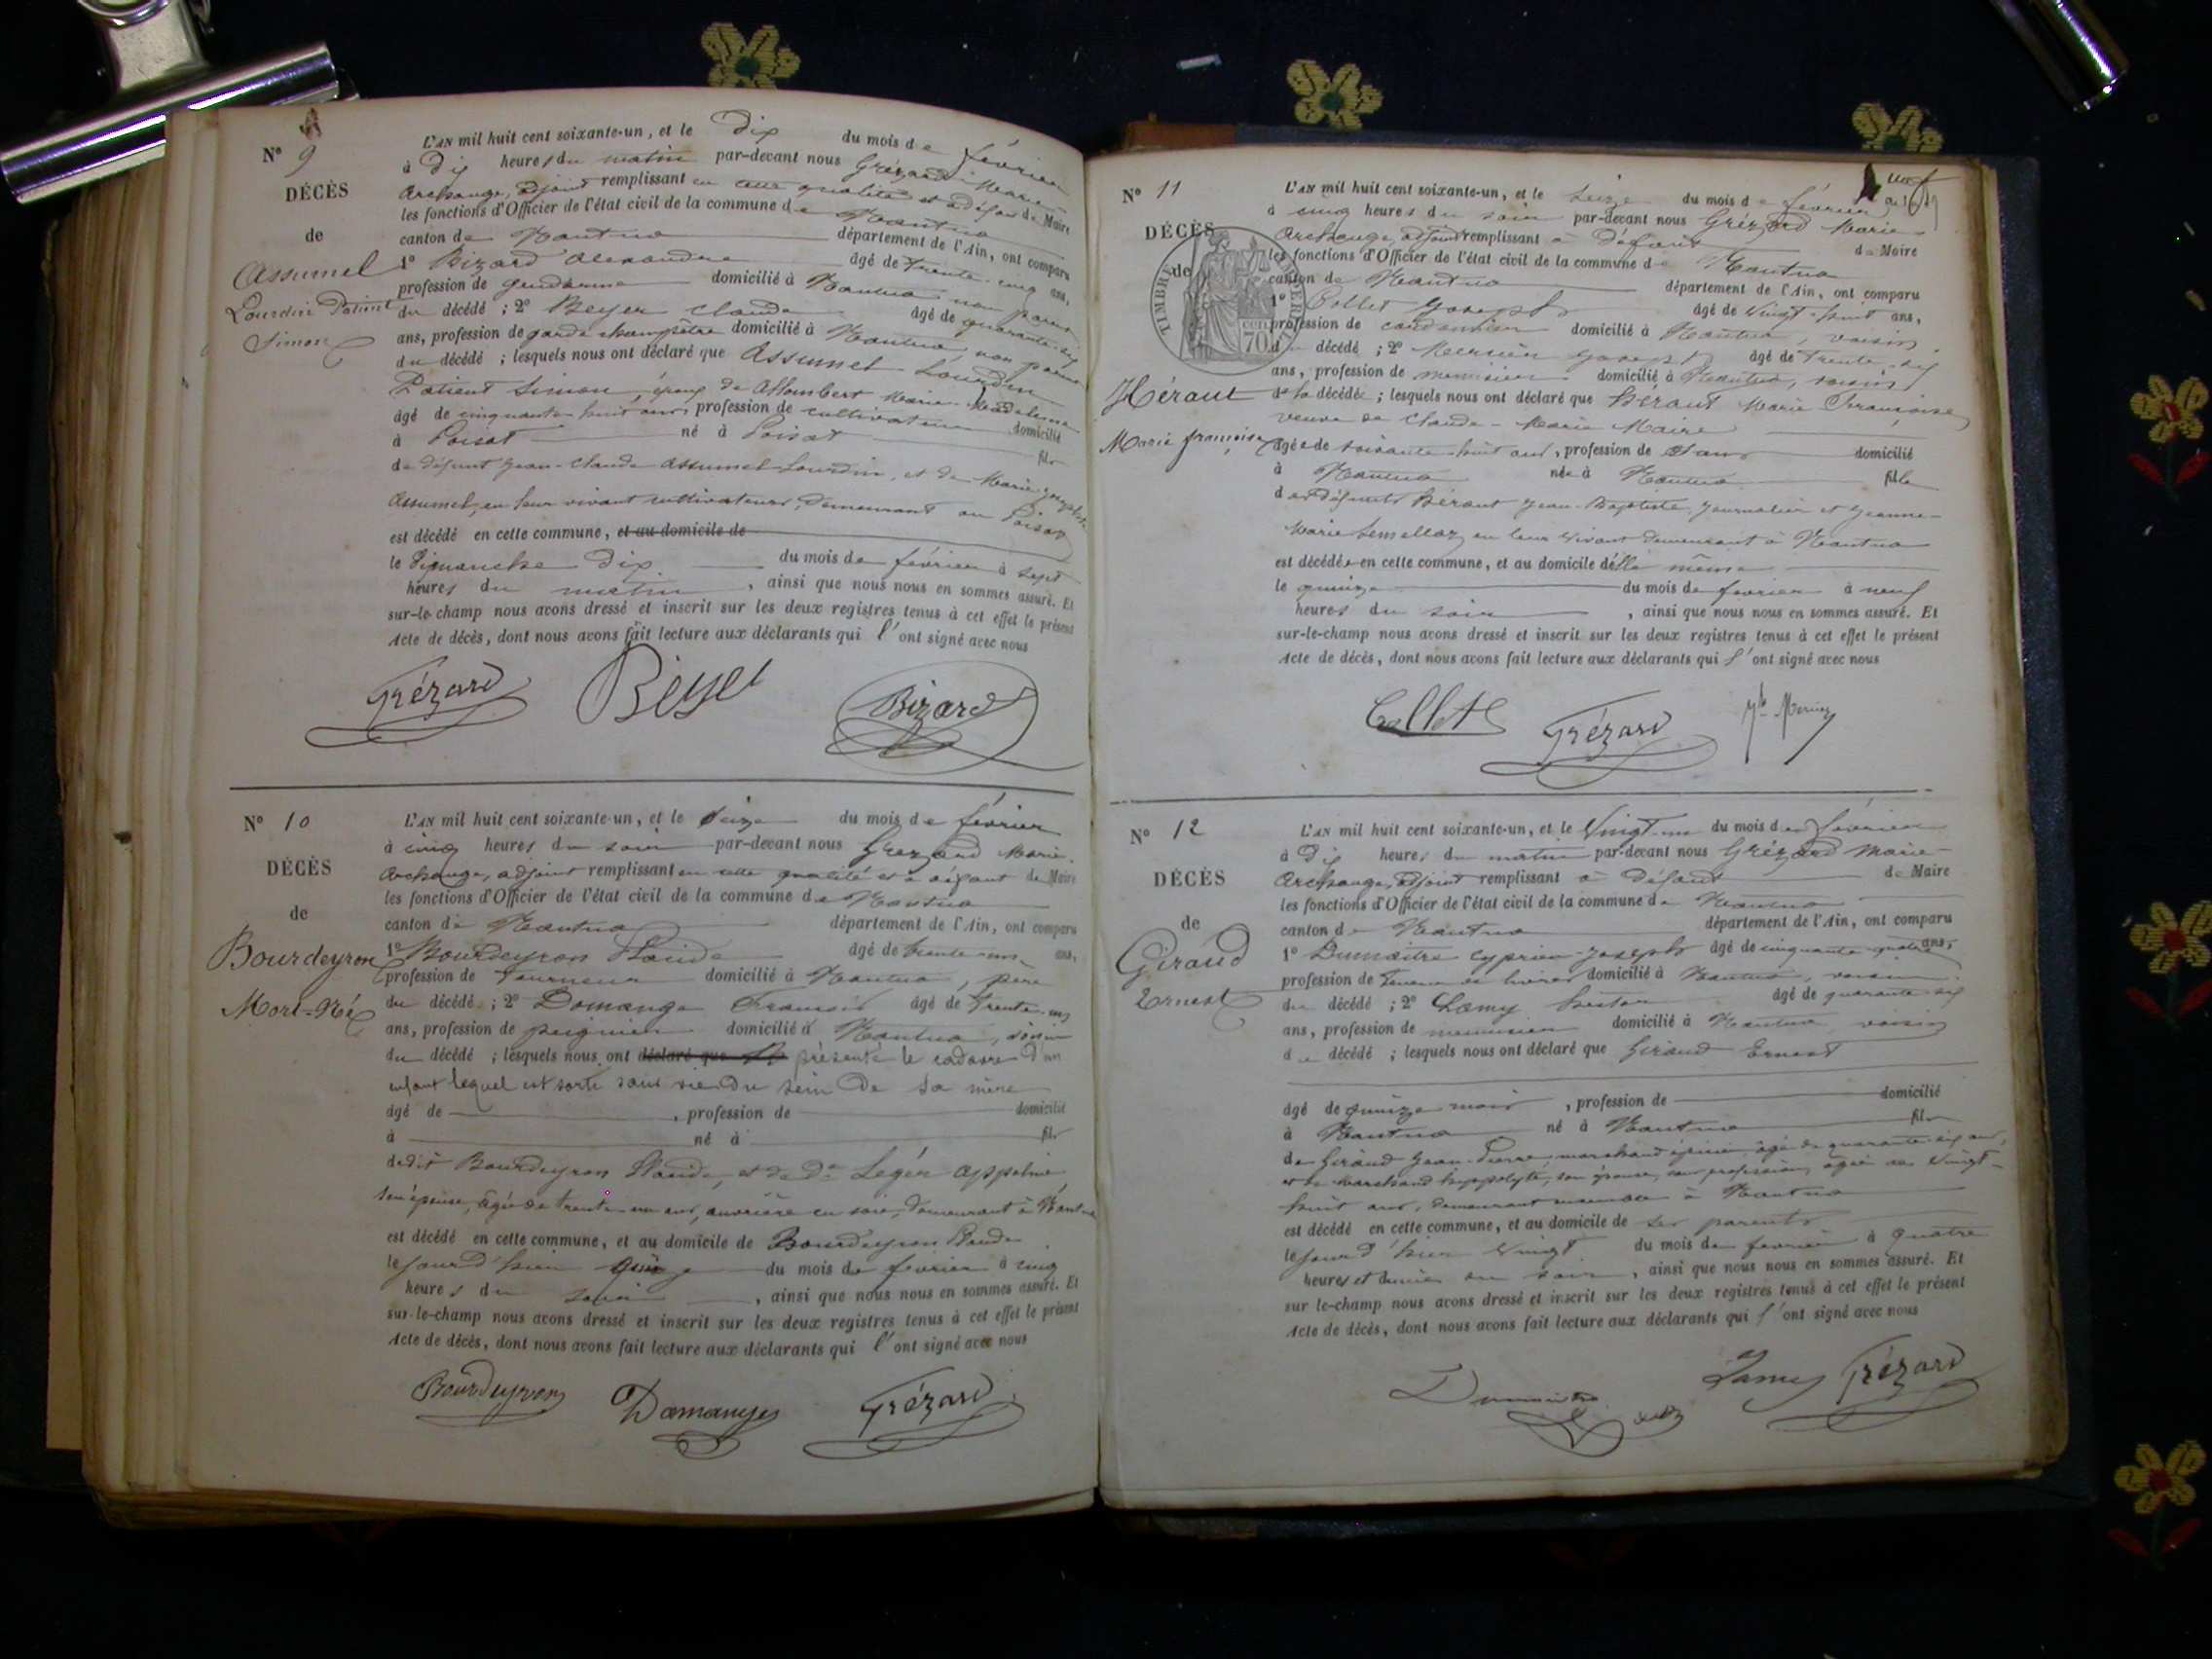 N° 9
DÉCÈS
de
Assumel
Lourdin Patient
Simon
L'AN mil huit cent soixante-un, et le dix du mois de février
à dix heures du matin par-devant nous Grézard Marie-
Archange, adjoint remplissant en cette qualité et à défaut de Maire
les fonctions d'Officier de l'état civil de la commune de Nantua
canton de Nantua département de l'Ain, ont comparu
1° Bizard Alexandre âgé de trente-cinq ans,
profession de gendarme domicilié à Nantua non parent
du décédé ; 2° Beyer Claude âgé de quarante-six
ans, profession de garde champêtre domicilié à Nantua, non parent
du décédé ; lesquels nous ont déclaré que Assumel-Lourdin
Patient Simon, époux de Allombert Marie-Madeleine
âgé de cinquante huit ans, profession de cultivateur domicilié
à Poisat né à Poisat fils
de défunt Jean-Claude Assumel-Lourdin, et de Marie
Assumel, en leur vivant cultivateurs, demeurant au Poisat
est décédé en cette commune, et au domicile de
le Dimanche dix du mois de février à sept
heures du matin, ainsi que nous nous en sommes assuré. Et
sur-le-champ nous avons dressé et inscrit sur les deux registres tenus à cet effet le présent
Acte de décès, dont nous avons fait lecture aux déclarants qui l'ont signé avec nous
Grézard Beyer Bizard
N° 10
DÉCÈS
de
Bourdeyron
Mort-Né
L'AN mil huit cent soixante-un, et le seize du mois de février
à cinq heures du soir par-devant nous Grézard Marie-
Archange, adjoint remplissant en cette qualité et à défaut de Maire
les fonctions d'Officier de l'état civil de la commune de Nantua
canton de Nantua département de l'Ain, ont comparu
1° Bourdeyron Claude âgé de trente-un ans,
profession de tourneur domicilié à Nantua, père
du décédé ; 2° Domange François âgé de trente-un
ans, profession de peignier domicilié à Nantua, voisin
du décédé ; lesquels nous ont déclaré que présenté le cadavre d'un
enfant lequel est sorti sans vie du sein de sa mère
âgé de , profession de domicilié
à né à fils
dudit Bourdeyron Claude, et de De Léger Appolinie
son épouse, âgée de trente un ans, ouvrière en soie, demeurant à Nantua
est décédé en cette commune, et au domicile de Bourdeyron Claude
le jour d'hier quinze du mois de février à cinq
heures du soir, ainsi que nous nous en sommes assuré. Et
sur-le-champ nous avons dressé et inscrit sur les deux registres tenus à cet effet le présent
Acte de décès, dont nous avons fait lecture aux déclarants qui l'ont signé avec nous
Bourdeyron Domange Grézard
N° 11
DÉCÈS
de
TIMBRE IMPÉRIAL
70 cen
Héraut
Marie françoise
L'AN mil huit cent soixante-un, et le seize du mois de février
à cinq heures du soir par-devant nous Grézard Marie-
Archange, adjoint remplissant à défaut de Maire
les fonctions d'Officier de l'état civil de la commune de Nantua
canton de Nantua département de l'Ain, ont comparu
1° Collet Joseph âgé de vingt-huit ans,
profession de cordonnier domicilié à Nantua, voisin
du décédé ; 2° Mercier Joseph âgé de trente-six
ans, profession de menuisier domicilié à Nantua, voisin
de la décédée ; lesquels nous ont déclaré que Héraut Marie Françoise
veuve de Claude-Marie Maire
âgée de soixante-huit ans, profession de sans domicilié
à Nantua née à Nantua fille
des défunts Héraut Jean-Baptiste, journalier et Jeanne-
Marie Semellaz, en leur vivant demeurant à Nantua
est décédée en cette commune, et au domicile d'elle même
le quinze du mois de février à neuf
heures du soir, ainsi que nous nous en sommes assuré. Et
sur-le-champ nous avons dressé et inscrit sur les deux registres tenus à cet effet le présent
Acte de décès, dont nous avons fait lecture aux déclarants qui l'ont signé avec nous
Collet Grézard Mercier
N° 12
DÉCÈS
de
Giraud
Ernest
L'AN mil huit cent soixante-un, et le vingt-un du mois de février
à dix heures du matin par-devant nous Grézard Marie-
Archange, adjoint remplissant à défaut de Maire
les fonctions d'Officier de l'état civil de la commune de Nantua
canton de Nantua département de l'Ain, ont comparu
1° Dumaitre Cyprien-Joseph âgé de cinquante-quatre ans,
profession de teneur de livres domicilié à Nantua, voisin
du décédé ; 2° Lamy âgé de quarante-six
ans, profession de menuisier domicilié à Nantua voisin
du décédé ; lesquels nous ont déclaré que Giraud Ernest
âgé de quinze mois, profession de domicilié
à Nantua né à Nantua fils
de Giraud Jean-Pierre, marchand épicier, âgé de quarante-six ans,
et de Marchand hyppolyte, son épouse, sans profession, âgée de vingt-
huit ans, demeurant ensemble à Nantua
est décédé en cette commune, et au domicile de ses parents
le jour d'hier vingt du mois de février à quatre
heures et demie du soir, ainsi que nous nous en sommes assuré. Et
sur le-champ nous avons dressé et inscrit sur les deux registres tenus à cet effet le présent
Acte de décès, dont nous avons fait lecture aux déclarants qui l'ont signé avec nous
Dumaitre Lamy Grézard